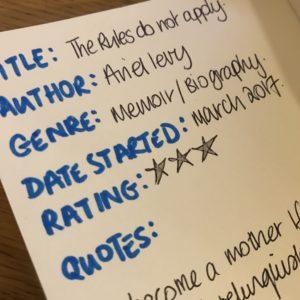 TITLE: The Rules do not apply.
AUTHOR: Ariel levy
GENRE: Memoir/Biography.
DATE STARTED: march 2017.
RATING:
QUOTES:
become a mother